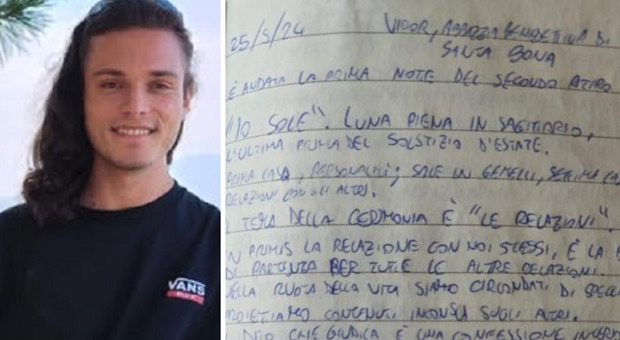 VANS
25/5/24 VIDOR, ABBAZIA BENEDETTINA DI
SANTA BONA
È ANDATA LA PRIMA NOTTE DEL SECONDO RITIRO
"IO SOLE". LUNA PIENA IN SAGITTARIO,
L'ULTIMA PRIMA DEL SOLSTIZIO D'ESTATE.
CASA, PERSONALITÀ; SOLE IN GEMELLI, SETTIMA CA
RELAZIONI CON GLI ALTRI.
IL TEMA DELLA CERIMONIA È "LE RELAZIONI".
IN PRIMIS LA RELAZIONE CON NOI STESSI, È LA B
DI PARTENZA PER TUTTE LE ALTRE RELAZIONI.
NELLA RUOTA DELLA VITA SIAMO CIRCONDATI DI SPECC
PROIETTIAMO CONTENUTI INCONSCI SUGLI ALTRI.
DITO CHE GIUDICA È UNA CONFESSIONE